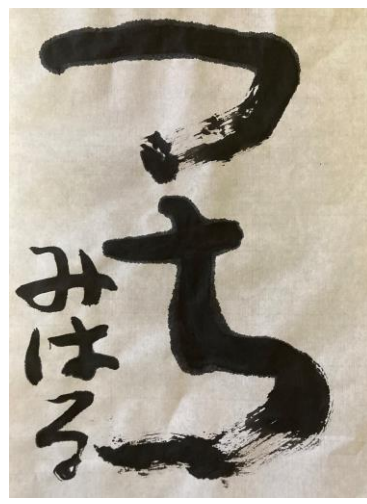 つち
みはる